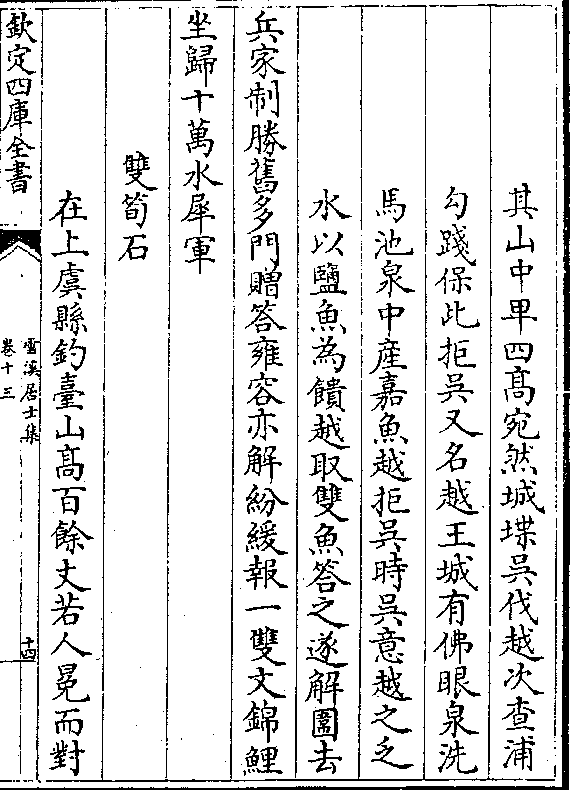 其山中卑四髙宛然城堞吳伐越次查浦
勾踐保此拒吳又名越王城有佛眼泉洗
馬池泉中産嘉魚越拒吳時吳意越之乏
水以鹽魚為饋越取雙魚答之遂解圍去
兵家制勝舊多門贈答雍容亦解紛緩報一雙文錦鯉
坐歸十萬水犀軍
雙筍石
在上虞縣釣臺山髙百餘丈若人冕而對
欽定四庫全書
雲溪居士集
卷十三
十四